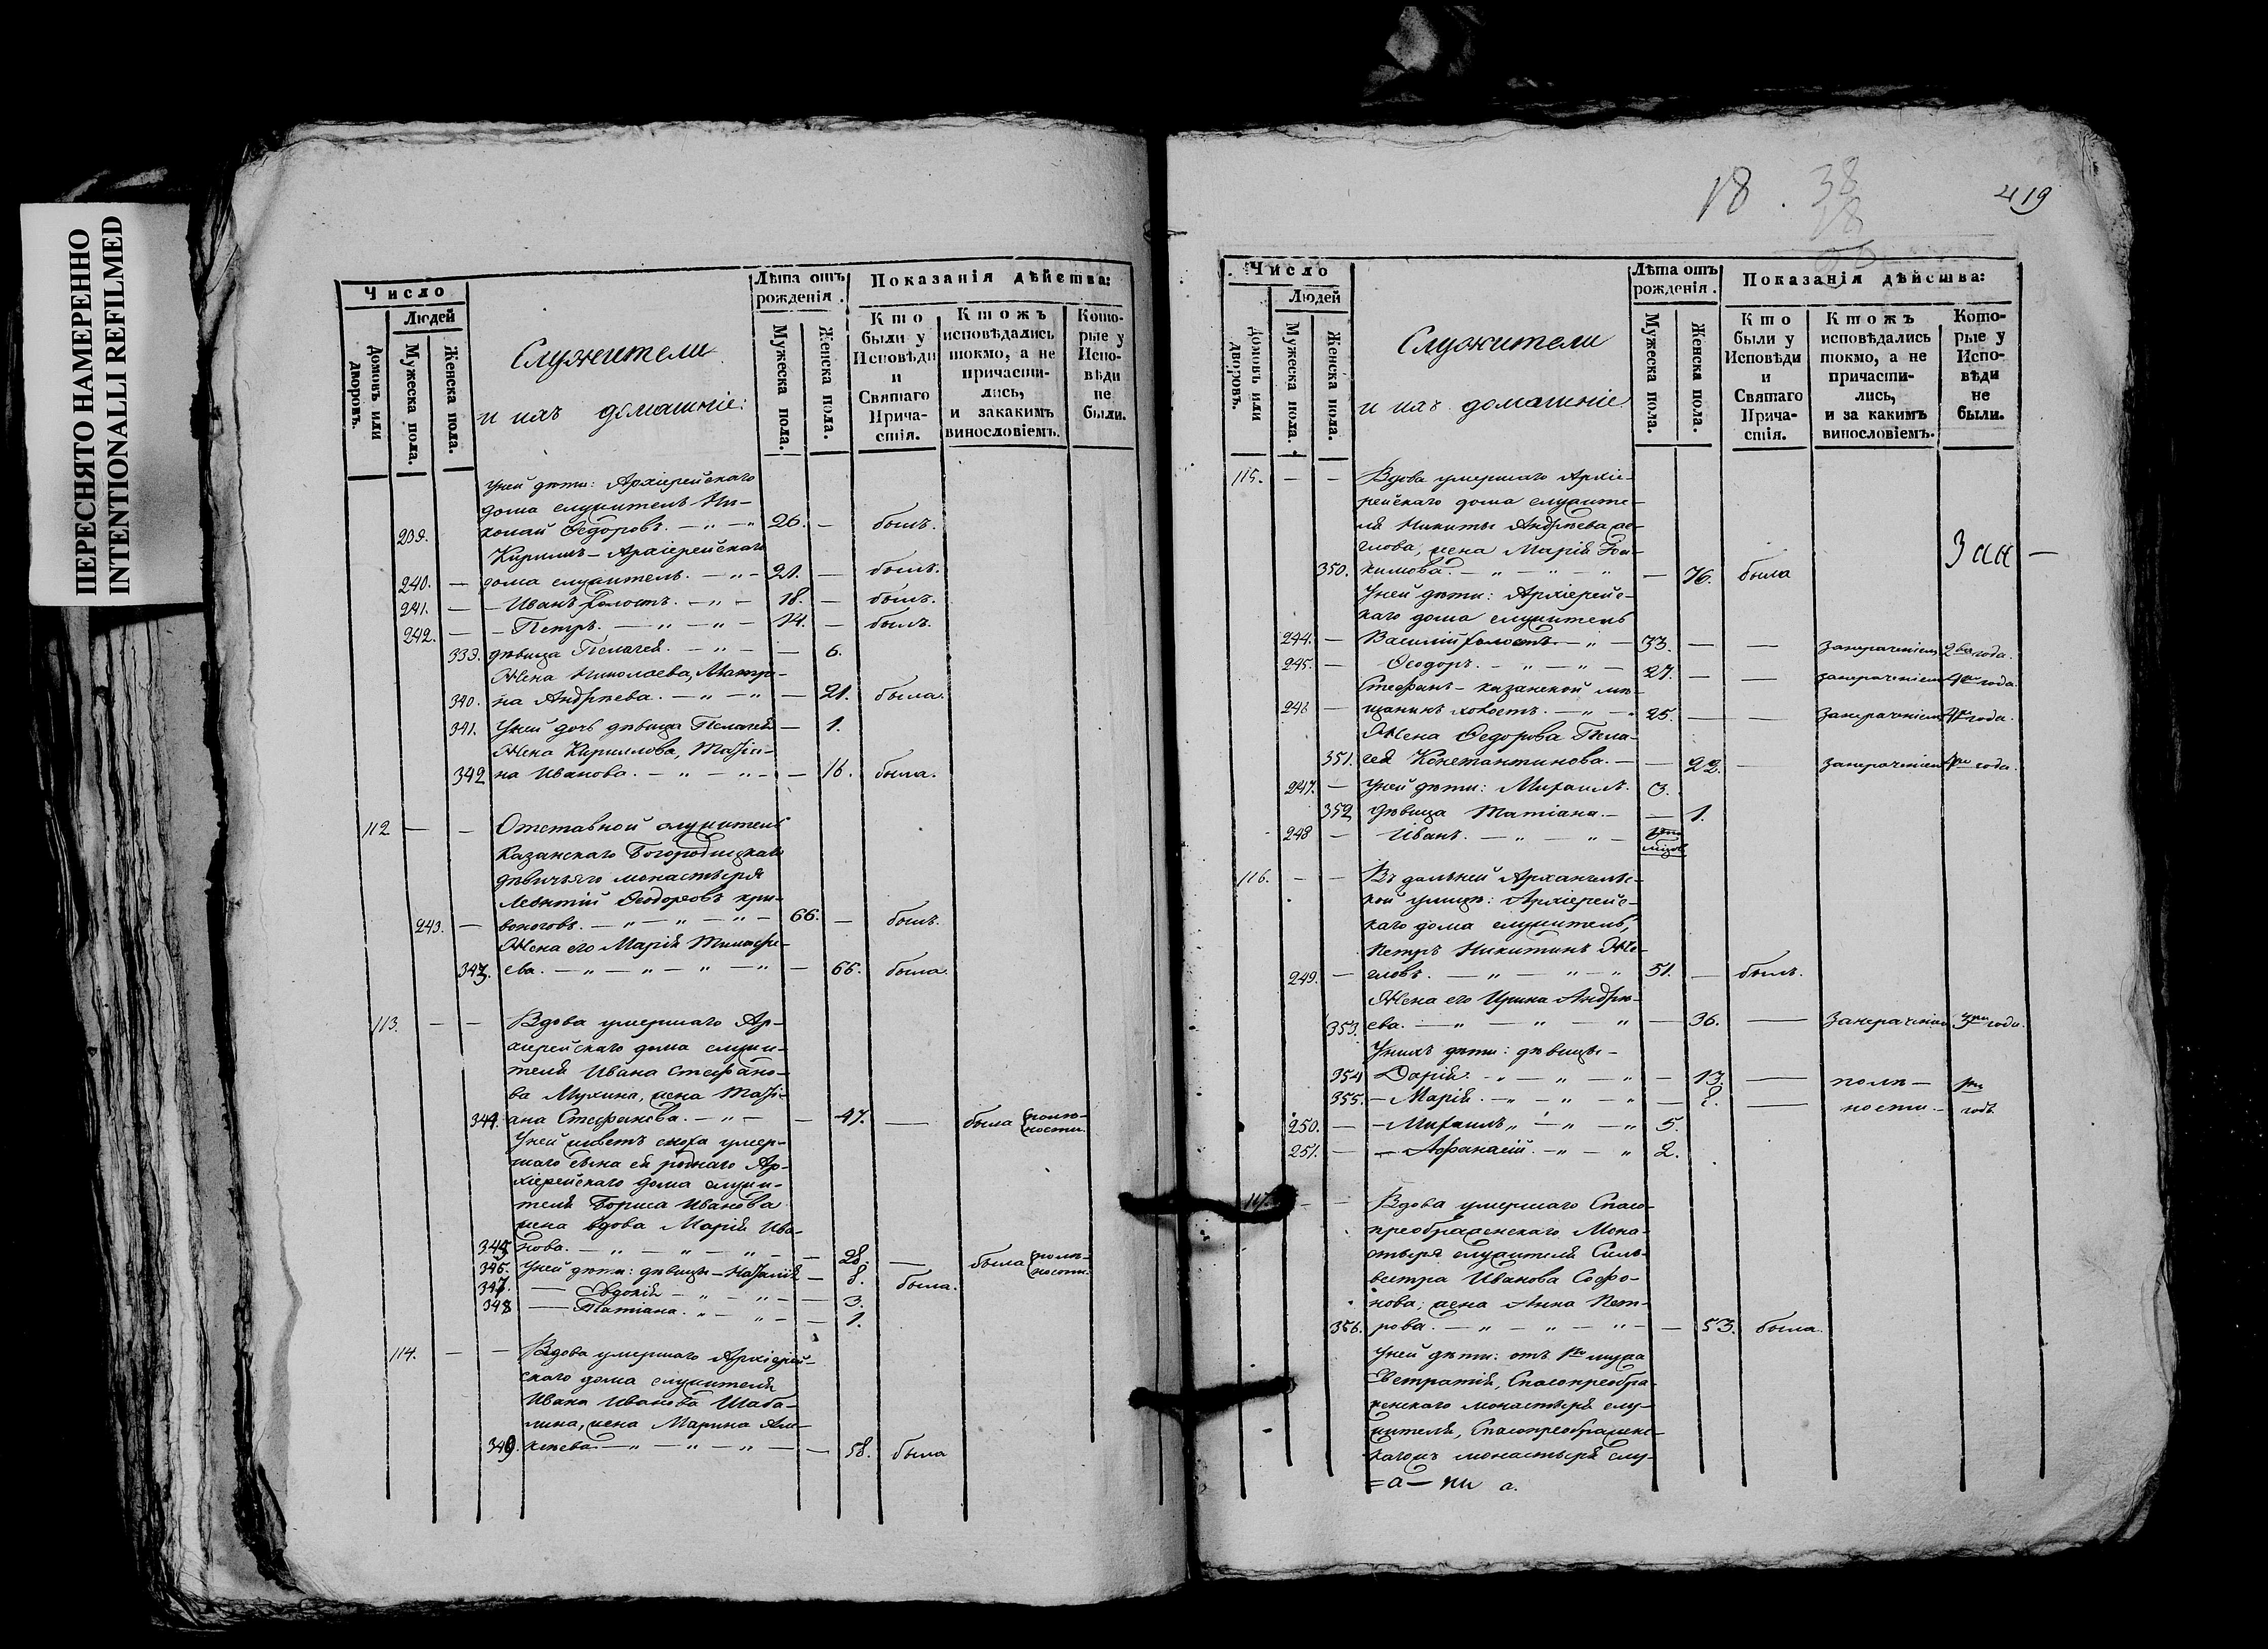 ПЕРЕСНЯТО НАМЕРЕННО
INTENTIONALLI REFILMED
Число
Людей
Домовъ или дворовъ.
Мужеска пола.
Женска пола.
Служители
и ихъ домашніе:
Лѣта отъ рожденія.
Мужеска пола.
Женска пола.
Показанія дѣйства:
Кто были у Исповѣди и Святаго Причастія.
Ктожъ исповѣдались токмо, а не причастились, и закакимъ винословіемъ.
Которые у Исповѣди не были.
Уней дѣти: Архіерейскаго
дома служитель Ни-
239. колай Ѳедоровъ. — „ — „ 26. — былъ.
Кирилъ — Архіерейскаго
240. — дома служитель. — „ — 21. — былъ.
241. — — Иванъ холостъ. — „ — 18. — былъ.
242. — — Петръ. — „ — „ — 14. — былъ.
339. дѣвица Пелагея. — „ — — 6.
Жена Николаева, Матре-
340. на Андрѣева. — „ — „ — 21. была.
341. Уней дочь дѣвица Пелагея — 1.
Жена Кирилова, Татiа-
342 на Иванова. — „ — „ — — 16. была.
112 — — Отставной служитель
Казанскаго Богородицкаго
дѣвичьяго монастыря
Леонтій Ѳеодоровъ кри-
243. — воноговъ. — „ — „ — „ — 66. — былъ.
Жена его Марія Тимофе-
343. ева. — „ — „ — „ — „ — 66. была.
113. — — Вдова умершаго Ар-
хіерейскаго дома служи-
теля Ивана Стефано-
ва Мухина, жена Татi-
344. ана Стефанова. — „ — — 47. — была
Уней живетъ сноха умер-
шаго сына ея роднаго Ар-
хіерейскаго дома служи-
теля Бориса Иванова
жена вдова Марія Ива-
345 нова. — „ — „ — „ — — 28. — была
346. Уней дѣти: дѣвицы — Наталія — 8. была.
347. — Евдокія — „ — „ — — 3.
348 — Татіана. „ — „ — — 1.
114. — — Вдова умершаго Архіерей-
скаго дома служителя
Ивана Иванова Шаба-
лина, жена Марина Але-
349. ксѣева — „ — „ — „ — — 58. была
18. 38
18
419
Число
Людей
Домовъ или дворовъ.
Мужеска пола.
Женска пола.
Служители
и ихъ домашніе
Лѣта отъ рожденія.
Мужеска пола.
Женска пола.
Показанія дѣйства:
Кто были у Исповѣди и Святаго Причастія.
Ктожъ исповѣдались токмо, а не причастились, и за какимъ винословіемъ.
Которые у Исповѣди не были.
115. — — Вдова умершаго Архіе-
рейскаго дома служите-
ля Никиты Андрѣева же-
глова, жена Марія Еки-
350. химова. — „ — „ — „ — 76. была
Уней дѣти: Архіерейс-
каго дома служитель
244. — Василій холостъ. — „ — 33. — — занераченіемъ 2 года.
245. — Ѳеодоръ. — „ — „ — 27. — — занераченіемъ года.
Стефанъ — казанской мѣ-
246 — щанинъ холостъ. — „ — „ 25. — — занераченіемъ года.
Жена Ѳедорова Пела-
351. гея Константинова. — — 22. — занераченіемъ года.
247. — Уней дѣти: Михаилъ. 3.
352 дѣвица Татіана. — — 1.
248 — Иванъ. — „ — „ —
116. — — Въ дальней Архангельс-
кой улицѣ: Архіерейс-
каго дома служитель,
Петръ Никитинъ Же-
249. — гловъ. — „ — „ — „ 51. — былъ.
Жена его Ирина Андрѣ-
353. ева. — „ — „ — „ — 36. — занераченіемъ 3 года.
Унихъ дѣти: дѣвицы —
354 Дарія. — „ — „ — „ — 13. —
355. — Марія. — „ — „ — „ — 8. —
250. — — Михаилъ „ — „ — „ 5.
251. — — Аѳанасій. — „ — „ 2.
117. — — Вдова умершаго Спасо-
преображенскаго Мона-
стыря служителя Силь-
вестра Иванова Софо-
нова, жена Анна Пет-
356. рова. — „ — „ — „ — — 53. была.
Уней дѣти: отъ 1го мужа
Евстратія, Спасопреобра-
женскаго монастыря слу-
жителя, Спасопреображенс-
кагожъ монастыря слу-